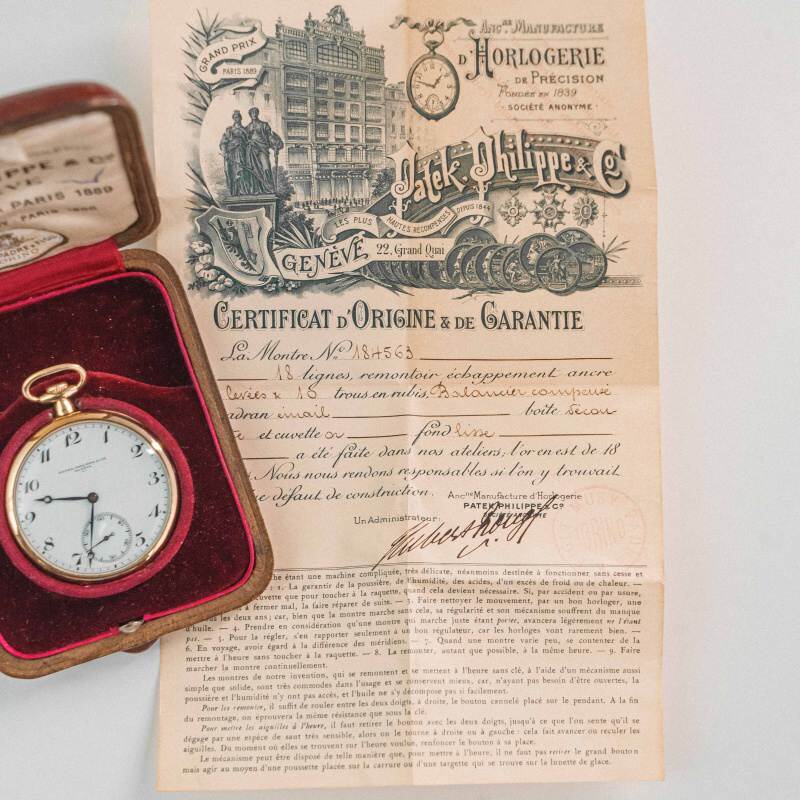 GRAND PRIX
PARIS 1889
ANCNE MANUFACTURE
D'HORLOGERIE
DE PRÉCISION
FONDÉE EN 1839
SOCIÉTÉ ANONYME
Patek, Philippe & Co
LES PLUS HAUTES RÉCOMPENSES DEPUIS 1844
GENÈVE 22, Grand Quai
CERTIFICAT D'ORIGINE & DE GARANTIE
La Montre No 184563
18 lignes, remontoir échappement ancre
levées x 15 trous en rubis, Balancier compensé
adran émail boîte décou
et cuvette or fond lisse
a été faite dans nos ateliers; l'or en est de 18
Nous nous rendons responsables si l'on y trouvait
défaut de construction.
Ancne Manufacture d'Horlogerie
PATEK, PHILIPPE & Co
SOCIÉTÉ ANONYME
Un Administrateur:
che étant une machine compliquée, très délicate, néanmoins destinée à fonctionner sans cesse et
: 1. La garantir de la poussière, de l'humidité, des acides, d'un excès de froid ou de chaleur. —
cuvette que pour toucher à la raquette, quand cela devient nécessaire. Si, par accident ou par usure,
à fermer mal, la faire réparer de suite. — 3. Faire nettoyer le mouvement, par un bon horloger, une
les deux ans; car, bien que la montre marche sans cela, sa régularité et son mécanisme souffrent du manque
d'huile. — 4. Prendre en considération qu'une montre qui marche juste étant portée, avancera légèrement ne l'étant
pas. — 5. Pour la régler, s'en rapporter seulement à un bon régulateur, car les horloges vont rarement bien. —
6. En voyage, avoir égard à la différence des méridiens. — 7. Quand une montre varie peu, se contenter de la
mettre à l'heure sans toucher à la raquette. — 8. La remonter, autant que possible, à la même heure. — 9. Faire
marcher la montre continuellement.
Les montres de notre invention, qui se remontent et se mettent à l'heure sans clé, à l'aide d'un mécanisme aussi
simple que solide, sont très commodes dans l'usage et se conservent mieux, car, n'ayant pas besoin d'être ouvertes, la
poussière et l'humidité n'y ont pas accès, et l'huile ne s'y décompose pas si facilement.
Pour les remonter, il suffit de rouler entre les deux doigts, à droite, le bouton cannelé placé sur le pendant. A la fin
du remontage, on éprouvera la même résistance que sous la clé.
Pour mettre les aiguilles à l'heure, il faut retirer le bouton avec les deux doigts, jusqu'à ce que l'on sente qu'il se
dégage par une espèce de saut très sensible, alors on le tourne à droite ou à gauche: cela fait avancer ou reculer les
aiguilles. Du moment où elles se trouvent sur l'heure voulue, renfoncer le bouton à sa place.
Le mécanisme peut être disposé de telle manière que, pour mettre à l'heure, il ne faut pas retirer le grand bouton
mais agir au moyen d'une poussette placée sur la carrure ou d'une targette qui se trouve sur la lunette de glace.
PPE & Co
ÈVE
PARIS 1889
12 1 2 3 4 5 7 8 9 10 11